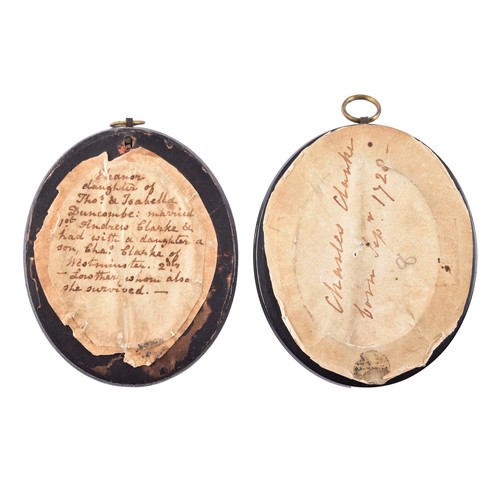 Eleanor
daughter of
Thos. & Isabella
Duncombe: married
1st Andrew Clarke &
had with a daughter a
son, Chas. Clarke of
Westminster. 2dly
— Lowther whom also
she survived. —
Charles Clarke
born Apr. 1728 —
8